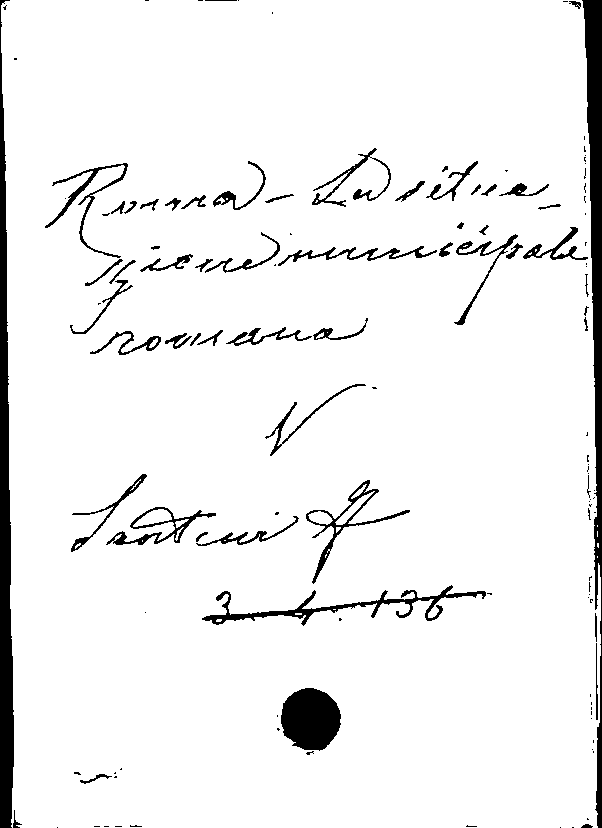 Roma - La situa-
zione municipale
romana
V
Santini F
3. 4. 136